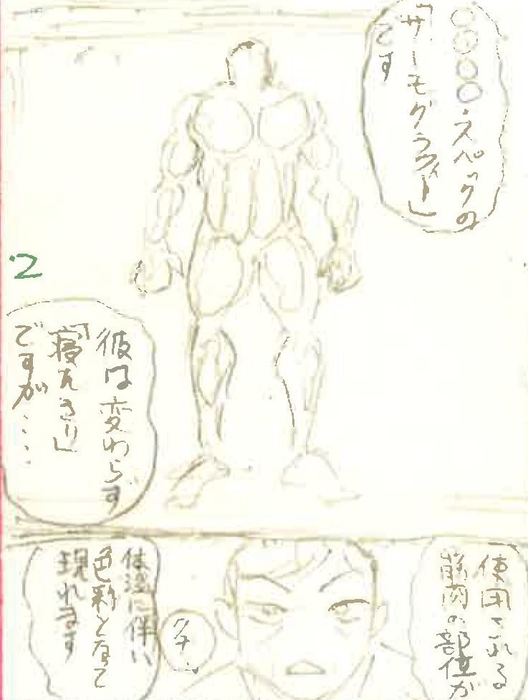 ○○○○・スペックの
「サーモグラフィー」
です
2
彼は変わらず
「寝たきり」
ですが・・・・
使用される
筋肉の部位が
クチ…
体温に伴い
色彩となって
現れます